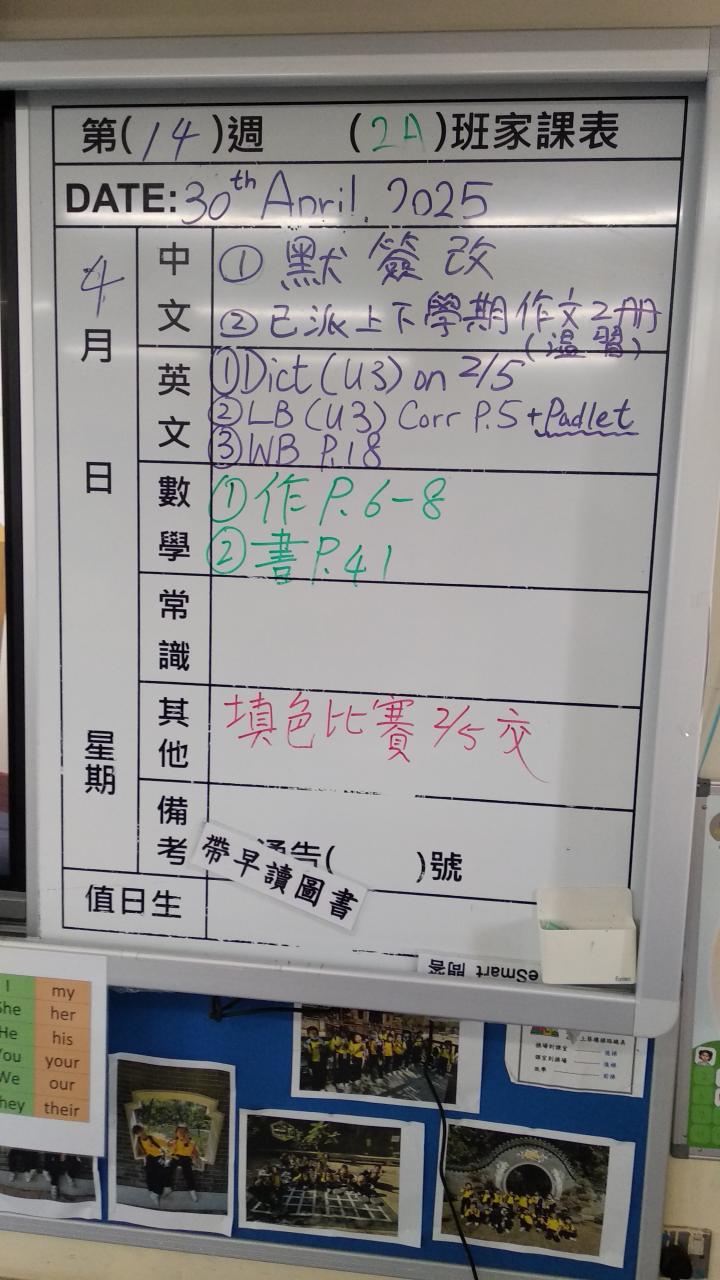 第(14)週 (2A)班家課表
DATE: 30th April, 2025
4月 日 星期
中文
① 默簽改
② 已派上下學期作文2冊
(溫習)
英文
① Dict (U3) on 2/5
② LB (U3) Corr P.5 + Padlet
③ WB P.18
數學
① 作 P.6-8
② 書 P.41
常識
其他
填色比賽 2/5 交
備考
通告( )號
帶早讀圖書
值日生
eSmart 問答
I my
She her
He his
You your
We our
They their